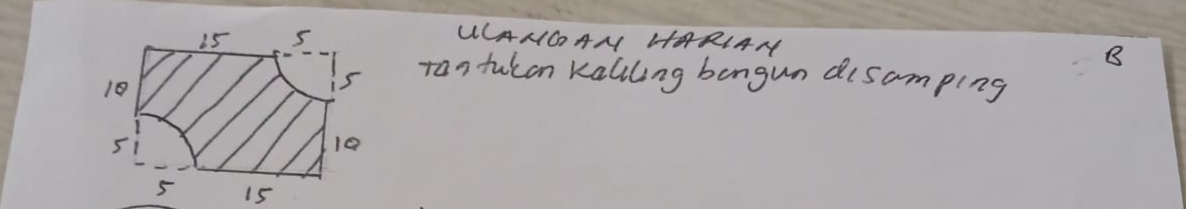 ULANGAN HARIAN
B
Tantukan Kaliling bangun disamping
15 5
10 5
5 10
5 15